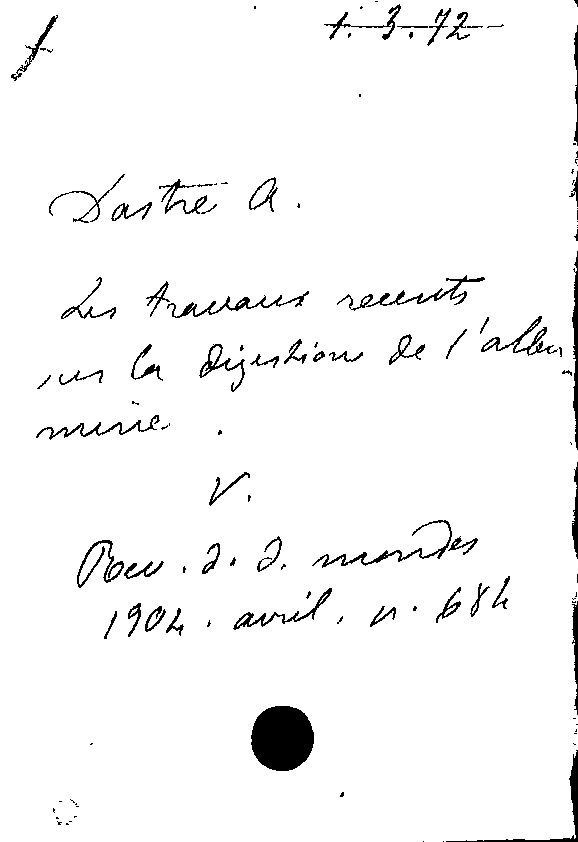 1. 3. 72
Dastre A.
Les travaux recents
sur la digestion de l'albu-
mine.
V.
Rev. d. d. mondes
1904. avril. n. 684